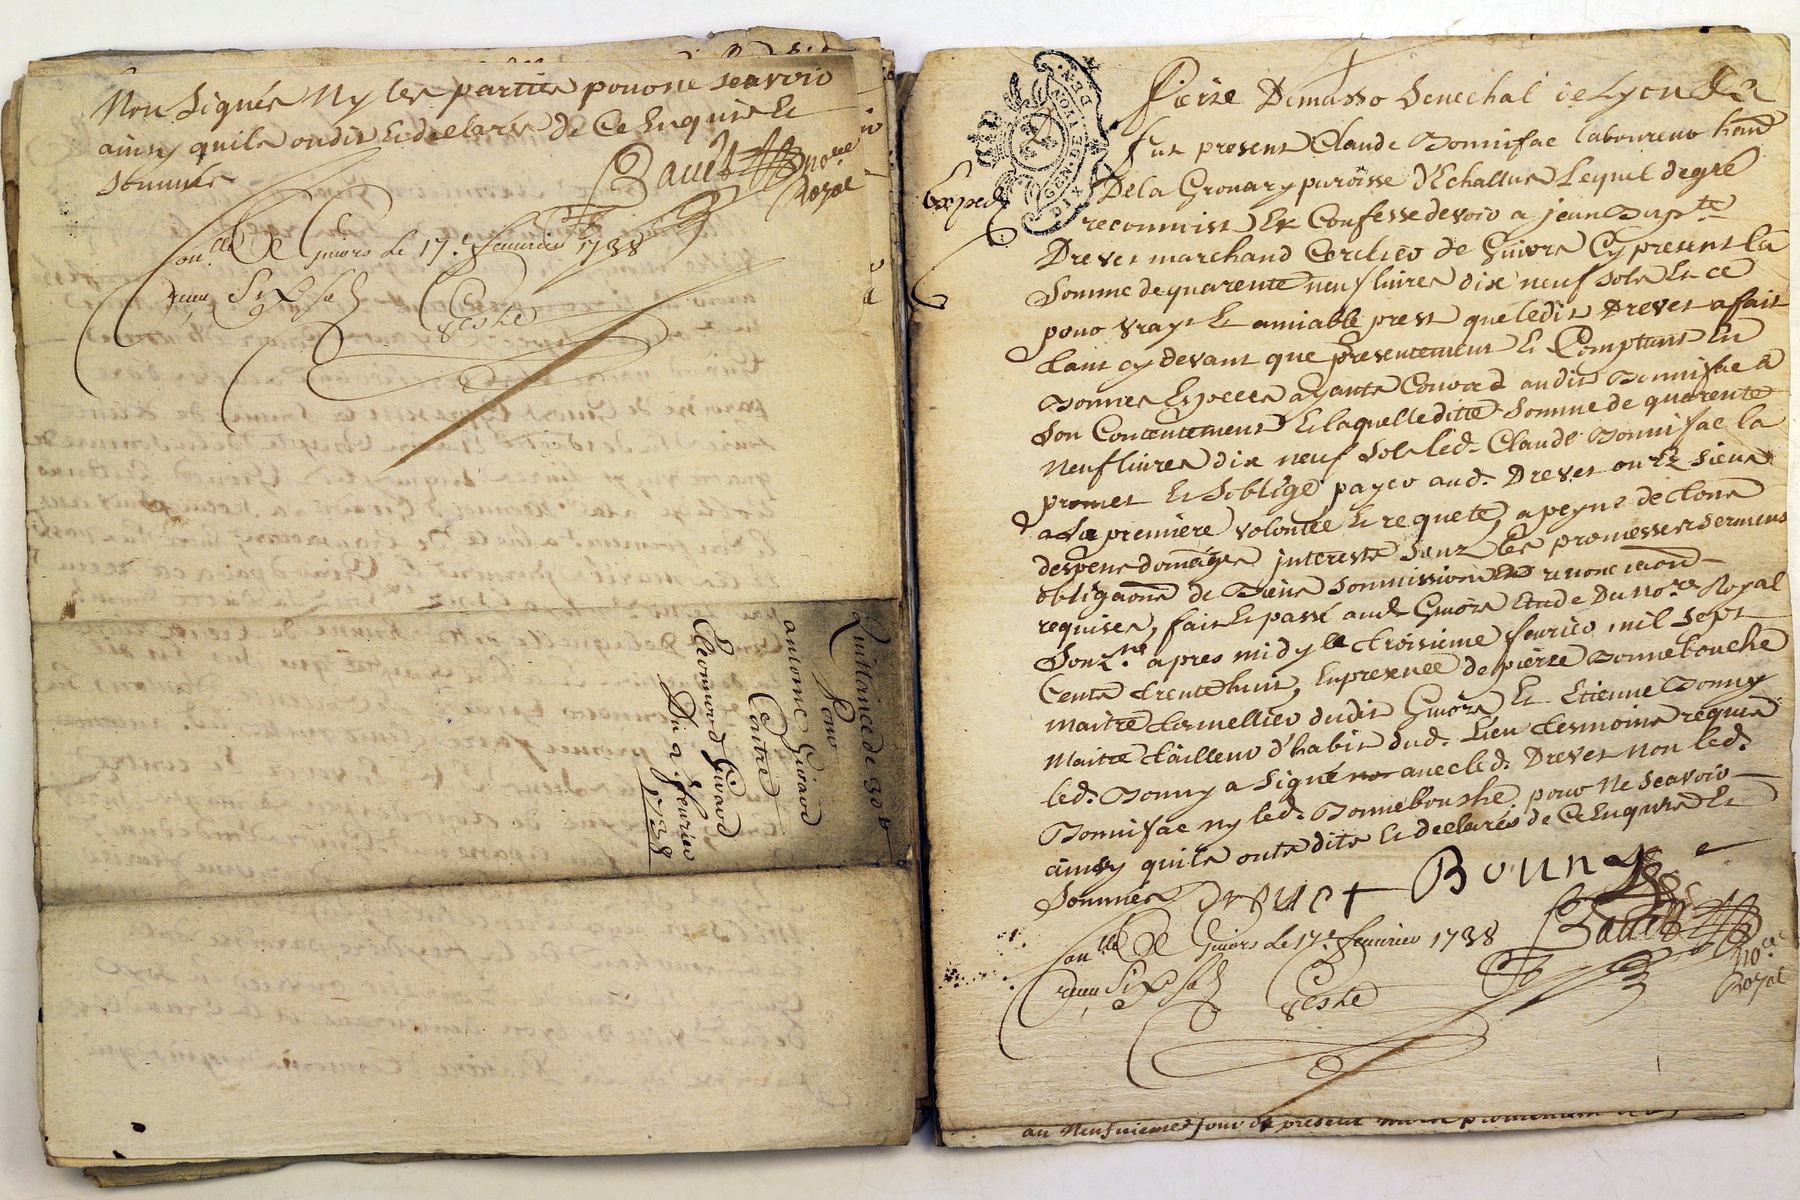 Non Signés Ny les parties pour ne scavoir
ainsy quils ondit et declarés de Ce Enquis Et
Sommés
no.re
Royal
Conllé A Givors le 17e feuvrier 1738
reçu Six s
Quittance de 30 tt
Pour
antoine Girard
Contre
Leonnard Girard
Du 9 feurier
1738
GEN. DE LION
DIX DEN.
Exped
Pierre Demasso Senechal de Lyon
fut present Claude Bonnifac laboureur hant
De la Gronary paroisse d'Echallas Lequel de gré
reconnoist Et Confesse devoir a jean Bapte
Drevet marchand Cordier de Givors Cy present La
Somme de quarente neuf livres dix neuf Sols Et ce
pour vray Et amiable prest que ledit Drevet a fait
tant cy devant que presentement Et Comptant En
Bonnes Especes ayants Cours audit Bonnifac a
Son Contentement Et laquelle ditte Somme de quarente
Neuf livres dix neuf Sols led. Claude Bonnifac la
promet Et Soblige payer aud. Drevet ou Es Siens
a Sa premiere volontée Et requete, a peyne de tous
despens domages interests Sous les promesses Serments
obligaons de Biens Soumissions renonciaons
requises, fait Et passé aud Givors Etude Du No.re Royal
Souz.né apres midy le troisieme feurier mil Sept
Cents trente huit, En presence de pierre Bonnebouche
maitre tonnellier dudit Givors Et Etienne Bonny
Maitre tailleur d'habit dud. Lieu tesmoins requis
led. Bonny a Signé avec led. Drevet Non led.
Bonnifac ny led. Bonnebouche pour Ne Scavoir
ainsy quils onts dits Et declarés de Ce Enquis Et
Sommés Drevet Bonny
no.re
Royal
Conllé A Givors le 17e feuvrier 1738
reçu Six s
au Neufvieme Jour de present